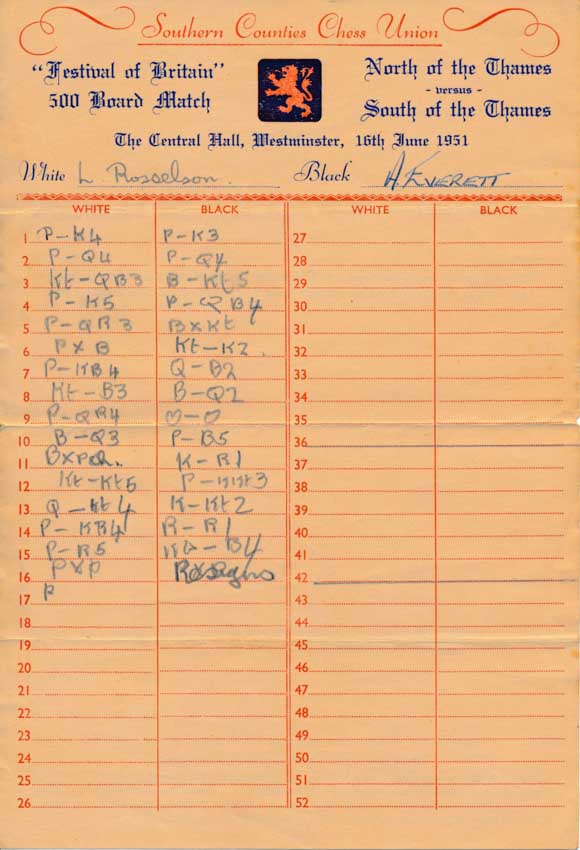 Southern Counties Chess Union
"Festival of Britain"
500 Board Match
North of the Thames
- versus -
South of the Thames
The Central Hall, Westminster, 16th June 1951
White L Rosselson. Black A EVERETT
WHITE BLACK WHITE BLACK
1 P-K4 P-K3 27
2 P-Q4 P-Q4 28
3 Kt-QB3 B-Kt5 29
4 P-K5 P-QB4 30
5 P-QR3 BxKt 31
6 PxB Kt-K2. 32
7 P-KB4 Q-B2 33
8 Kt-B3 B-Q2 34
9 P-QR4 O-O 35
10 B-Q3 P-B5 36
11 K-R1 37
12 Kt-Kt5 38
13 Q-Kt4 K-Kt2 39
14 P-KR4 R-R1 40
15 P-R5 Kt-B4 41
16 PxP Resigns 42
17 P 43
18 44
19 45
20 46
21 47
22 48
23 49
24 50
25 51
26 52